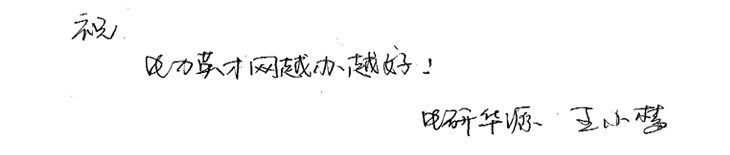 祝
电力英才网越办越好！
电研华源 王小梦